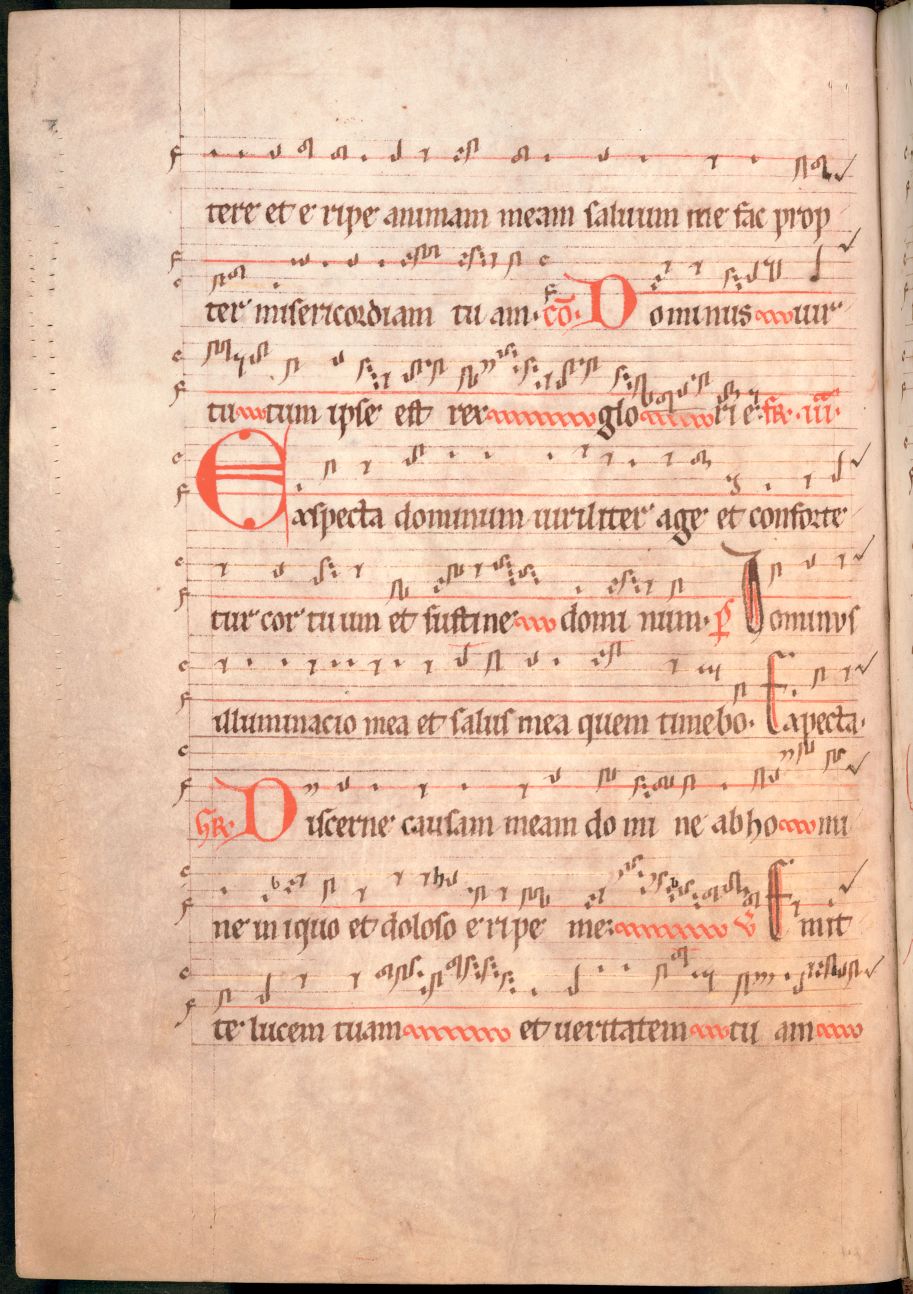 tere et e ripe animam meam saluum me fac prop
ter misericordiam tu am. cō. Dominus uir
tu tum ipse est rex glo ri e. fr. iii.
Exspecta dominum uiriliter age et conforte
tur cor tuum et sustine domi num. p̄s Dominus
illuminacio mea et salus mea quem timebo. Expecta.
gR. Discerne causam meam do mi ne ab ho mi
ne iniquo et doloso eripe me. v̄ Emit
te lucem tuam et ueritatem tu am